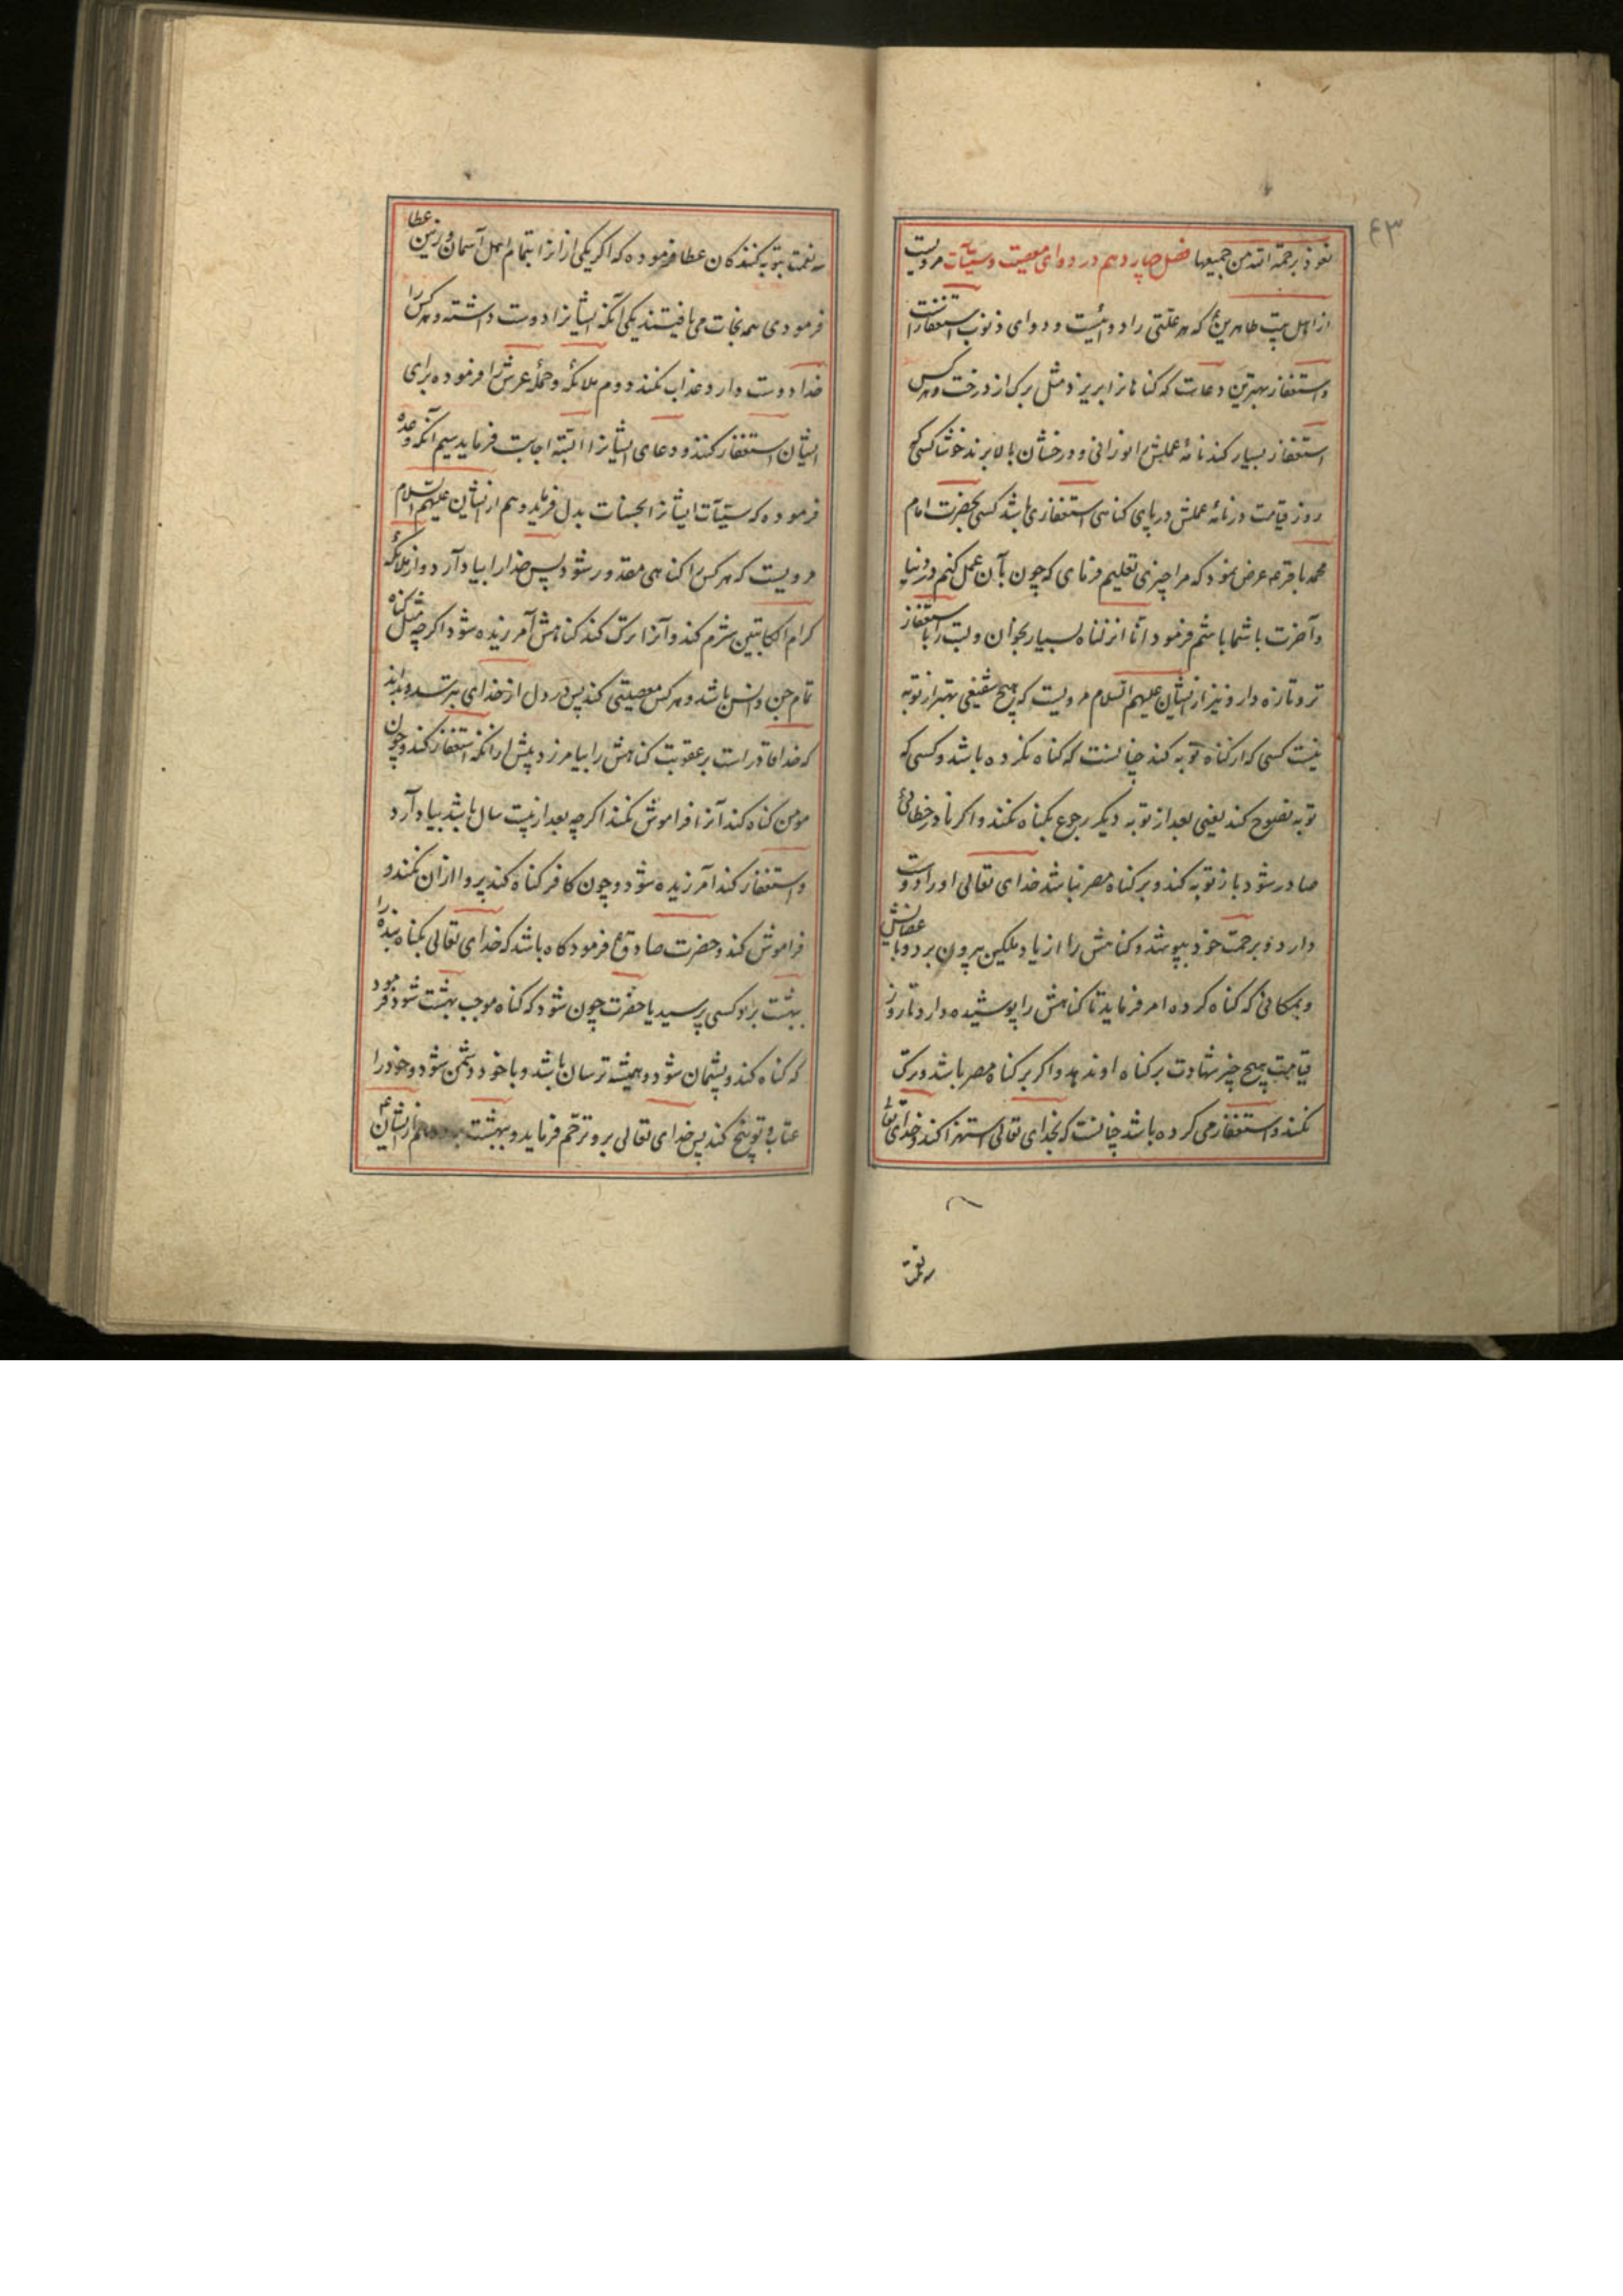 ۴۳
نعوذ برحمة الله من جمیعها فصل چهاردهم در دوای معصیت و سیّئات مرویست
از اهل بیت طاهرینؑ که هر علّتی را دوائیست و دوای ذنوب استغفار است
و استغفار بهترین دعاست که کناهانرا بریزد مثل برک از درخت و هرکس
استغفار بسیار کند نامهٔ عملش را نورانی و درخشان بالا برند خوشا کسی که
روز قیامت در نامهٔ عملش در پای کناهی استغفاری باشد کسی بحضرت امام
محمد باقر ع عرض نمود که مرا چیزی تعلیم فرمای که چون بآن عمل کنم در دنیا
و آخرت با شما باشم فرمود انّا انزلناه بسیار بخوان و لبت را با استغفار
تر و تازه دار و نیز از ایشان علیهم السلام مرویست که هیچ شفیعی بهتر از توبه
نیست کسی که از کناه توبه کند چنانست که کناه نکرده باشد و کسی که
توبه نصوح کند یعنی بعد از توبه دیکر رجوع بکناه نکند و اکر نادر خطائی
صادر شود باز توبه کند و بر کناه مصر نباشد خدای تعالی او را دوست
دارد و برحمت خود بپوشد و کناهش را از یاد ملکین بیرون برد و باعضایش
و بمکانی که کناه کرده امر فرماید تا کناهش را پوشیده دارد تا روز
قیامت هیچ چیز شهادت بر کناه او ندهد و اکر بر کناه مصر باشد و ترک
نکند و استغفار می کرده باشد چنانست که بخدای تعالی استهزا کند و خدای تعالی
سه نعمت
سه نعمت بتوبه کنندکان عطا فرموده که اکر یکی از انرا بتمام اهل آسمان و زمین عطا
فرمودی همه نجات می یافتند یکی آنکه ایشانرا دوست داشته و هرکس را
خدا دوست دارد عذاب نکند دوم ملائکه و حملهٔ عرش را فرموده برای
ایشان استغفار کنند و دعای ایشانرا البتّه اجابت فرماید سیم آنکه وعده
فرموده که سیّئات ایشانرا بحسنات بدل فرماید و هم از ایشان علیهم السلام
مرویست که هرکس را کناهی مقدور شود پس خدا را بیاد آرد و از ملائکهٔ
کرام الکاتبین شرم کند و آنرا ترک کند کناهش آمرزیده شود اکرچه مثل کناه
تمام جن و انس باشد و هرکس معصیتی کند پس در دل از خدای بترسد و بداند
که خدا قادر است بر عقوبت کناهش را بیامرزد پیش از آنکه استغفار کند و چون
مومن کناه کند آنرا فراموش نکند اکرچه بعد از بیست سال باشد بیاد آرد
و استغفار کند آمرزیده شود و چون کافر کناه کند پروا از آن نکند و
فراموش کند و حضرت صادقؑ فرمود کاه باشد که خدای تعالی بکناه بندهٔ را
ببهشت برد کسی پرسید یا حضرت چون شود که کناه موجب بهشت شود فرمود
که کناه کند و پشیمان شود و همیشه ترسان باشد و با خود دشمن شود و خود را
عتاب و توبیخ کند پس خدای تعالی برو ترحّم فرماید و ببهشت برد و هم از ایشانؑ